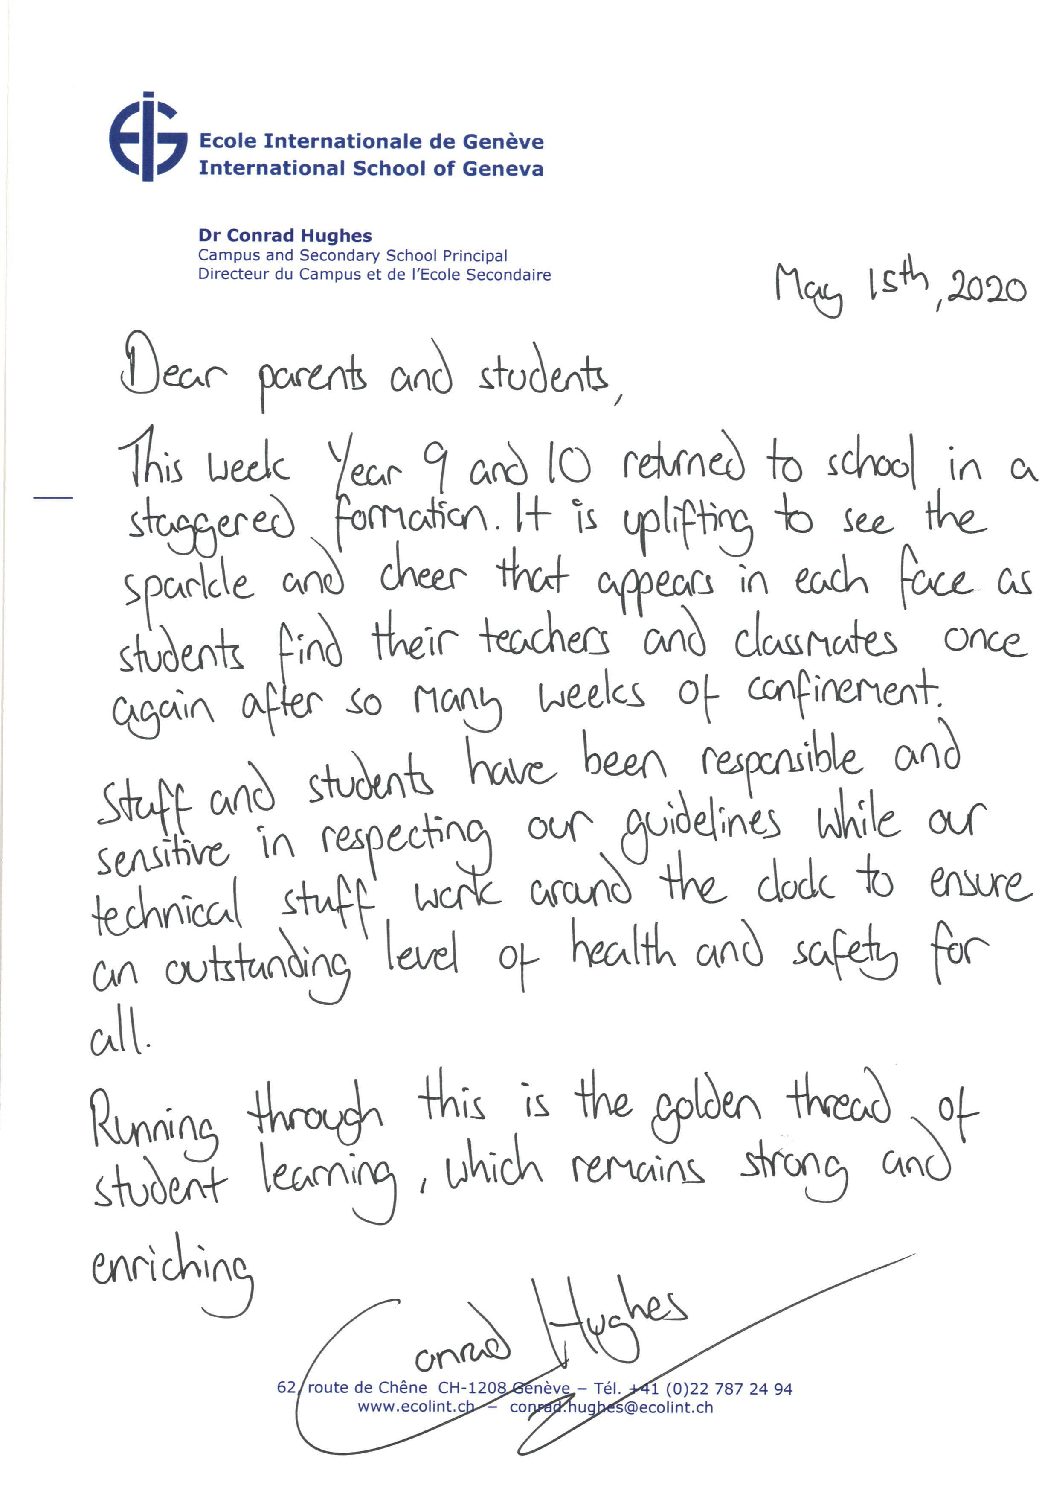 EIG
Ecole Internationale de Genève
International School of Geneva
Dr Conrad Hughes
Campus and Secondary School Principal
Directeur du Campus et de l'Ecole Secondaire
May 15th, 2020
Dear parents and students,
This week Year 9 and 10 returned to school in a
staggered formation. It is uplifting to see the
sparkle and cheer that appears in each face as
students find their teachers and classmates once
again after so many weeks of confinement.
Staff and students have been responsible and
sensitive in respecting our guidelines while our
technical staff work around the clock to ensure
an outstanding level of health and safety for
all.
Running through this is the golden thread of
student learning, which remains strong and
enriching
Conrad Hughes
62, route de Chêne CH-1208 Genève – Tél. +41 (0)22 787 24 94
www.ecolint.ch – conrad.hughes@ecolint.ch